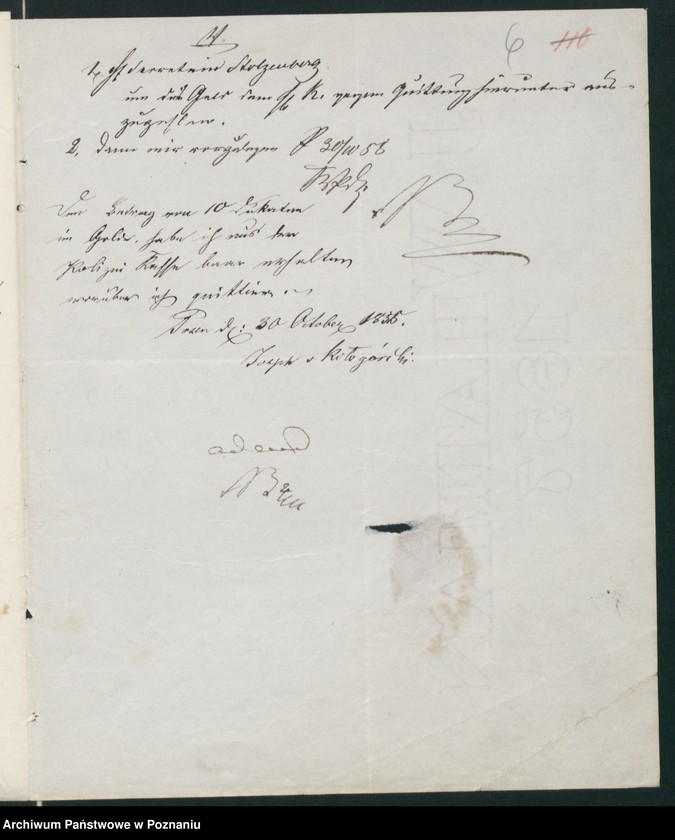 V.
6 116
1, H Secretair Stolzenberg
um das Geld dem H. K. gegen Quittung hierunter aus-
zuzahlen.
2, dann mir vorzulegen P 30/10 58
Den Betrag von 10 Dukaten
in Golde, habe ich aus der
Polizei Kasse baar erhalten
worüber ich quittire
Posen d. 30 October 1858.
Joseph v
ad acta
WHATMAN
1857
Archiwum Państwowe w Poznaniu